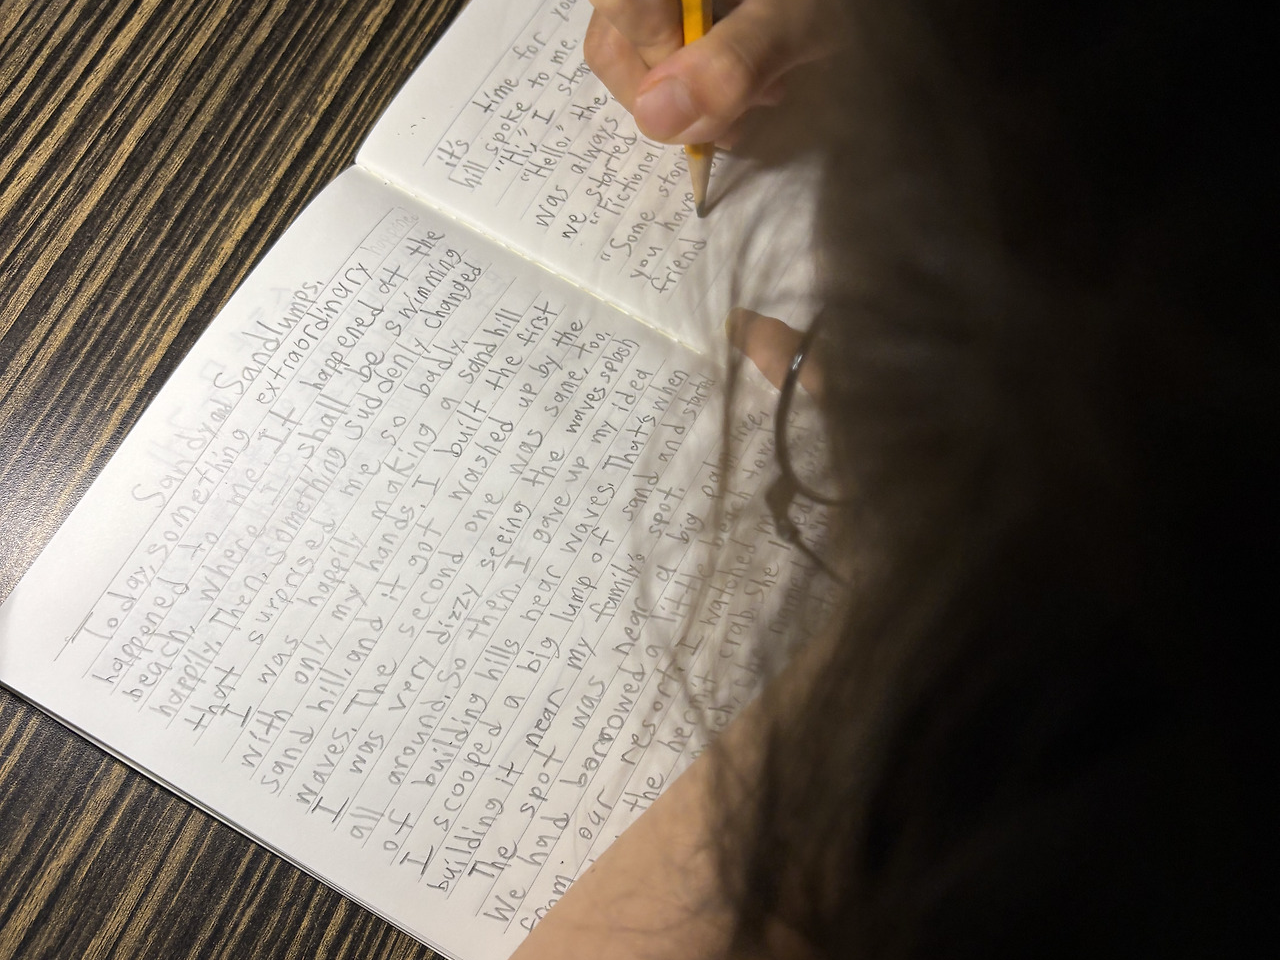 Sandy and Sandlumps.
Today, something extraordinary
happened to me. It happened at the
beach, where I shall be swimming
happily. Then, something suddenly changed
that surprised me so badly.
I was happily making a sandhill
with only my hands. I built the first
sand hill, and it got washed up by the
waves. The second one was same, too.
I was very dizzy seeing the waves splash
all around. So then, I gave up my idea
of building hills near waves. That's when
I scooped a big lump of sand and started
building it near my family's spot.
The spot was near a big palm tree.
We had barrowed a little beach towel
from our resort. I watched
the hermit crab. She
it's time for you
hill spoke to me.
"Hi," I
"Hello," the
was always
we started
"Fictional
"Some
you have
friend